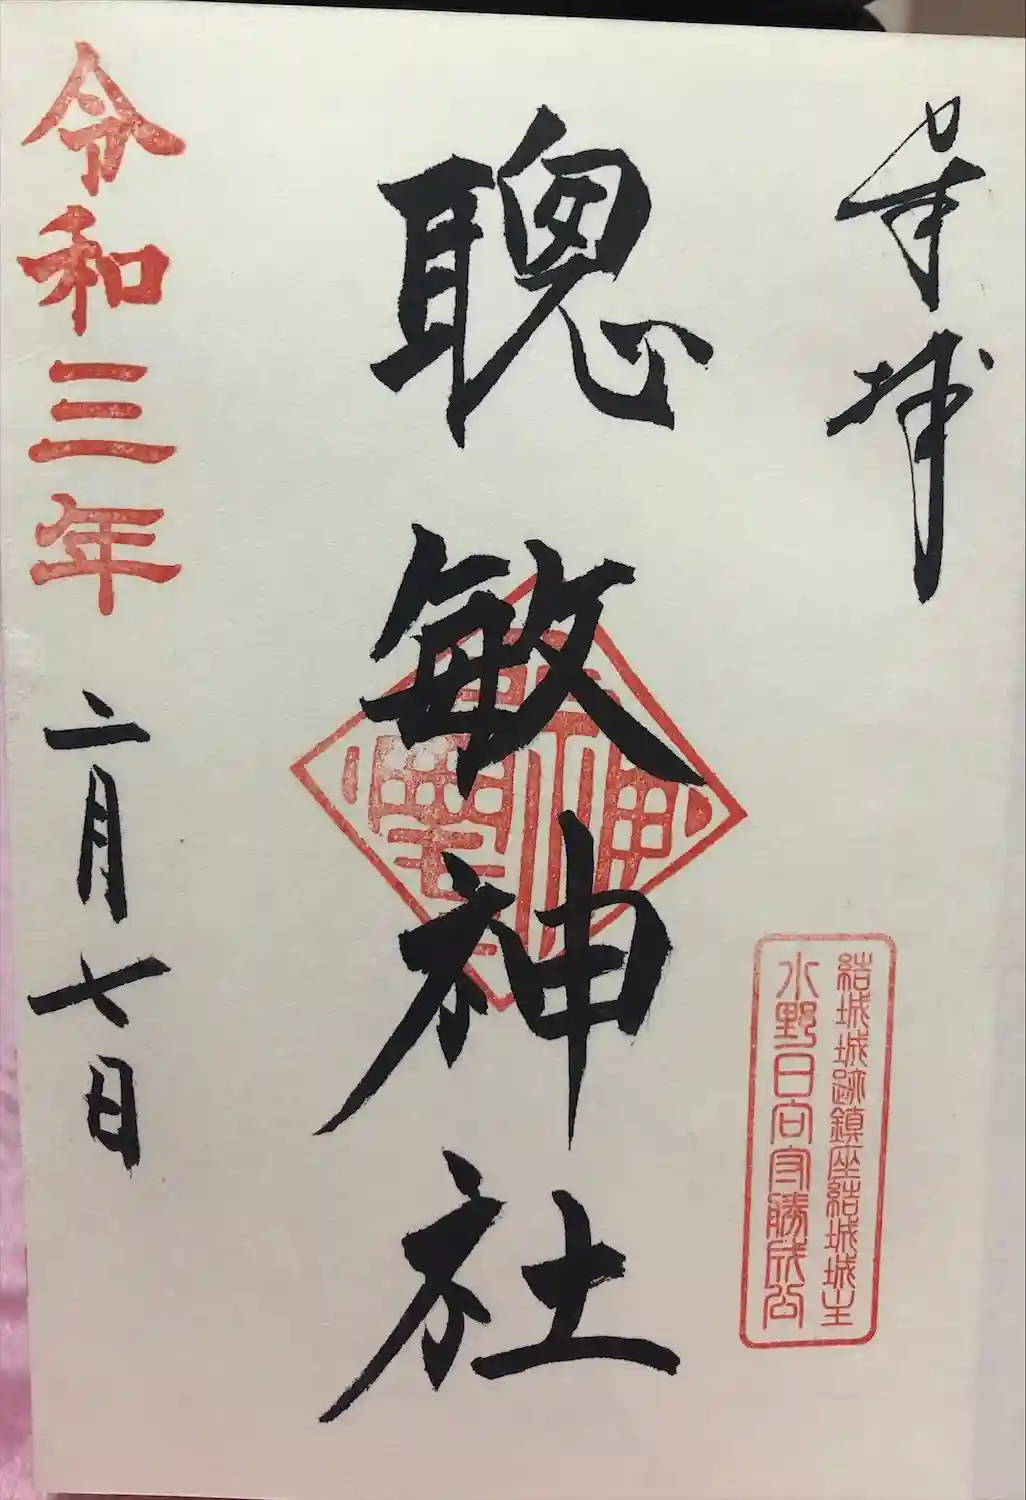 奉拝
結城城跡鎮座結城城主
水野日向守勝成公
聰敏神社
令和三年二月七日